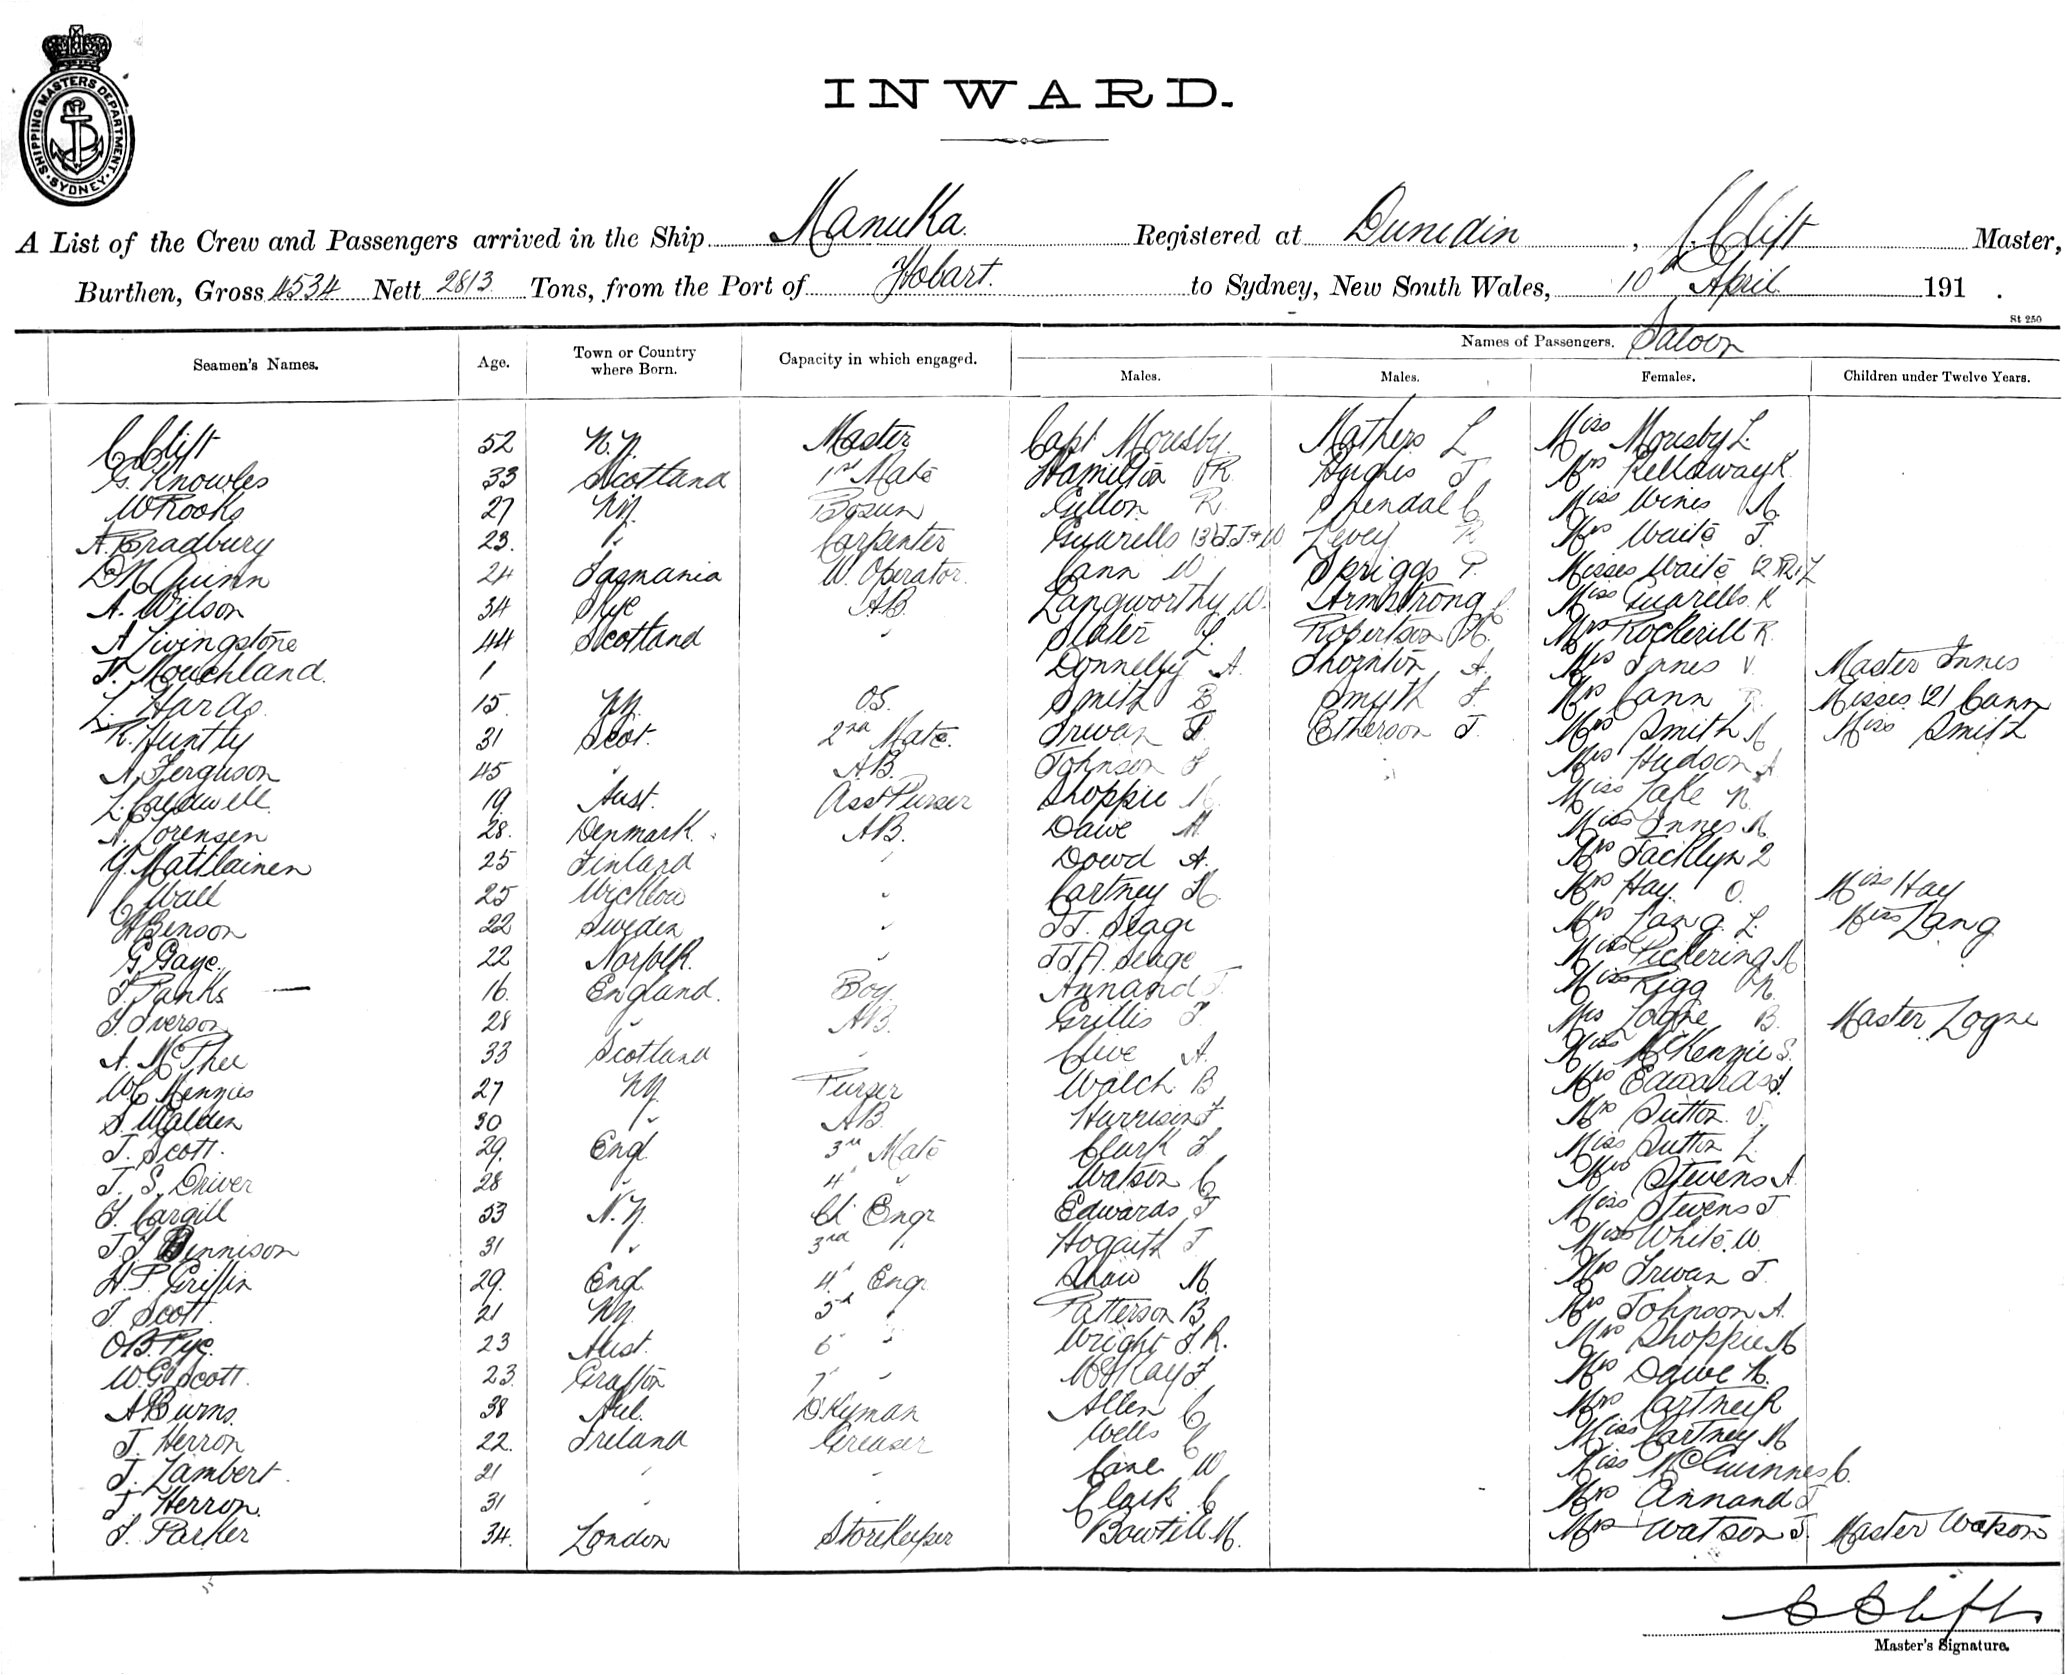 SHIPPING MASTERS DEPARTMENT. SYDNEY.
INWARD.
A List of the Crew and Passengers arrived in the Ship Manuka. Registered at Dunedin, C. Clift Master,
Burthen, Gross 4534 Nett 2813 Tons, from the Port of Hobart. to Sydney, New South Wales, 10th April 191 .
St 250
Names of Passengers. Saloon
Seamen's Names. Age. Town or Country where Born. Capacity in which engaged. Males. Males. Females. Children under Twelve Years.
C Clift 52 N.Z. Master Capt Moresby Mathers L Miss Moresby L.
G. Knowles 33 Scotland 1st Mate Hamilton R. Hughes J Mrs Kellaway K
W Rooks 27 NZ. Bosun Gillon R. C Miss Wines A.
A. Bradbury 23. " Carpenter Guarells (3) J.J.+W Levey R Mrs Waite J.
D McQuinn 24 Tasmania W. Operator. Cann W Spriggs P. Misses Waite (2) R.L
A. Wilson 34 Skye A.B. Langworthy W. Armstrong C. Miss Guarells. K
A Livingstone 44 Scotland " Slater L. Robertson H. Mrs Rockerill R.
F. Mouchland. Donnelly A. Thornton A. Mrs Innes V. Master Innes
L. Hards. 15. NZ. O.S. Smith B Smith F. Mrs Cann R. Misses (2) Cann
R. Huntly 31 Scot. 2nd Mate. Irwan F. Etherson J. Mrs Smith M Miss Smith
A. Ferguson 45 " A.B. Johnson F Mrs Hudson A
L. Caldwell. 19. Aust. Asst Purser Shoppie N. Miss Lake N.
A. Sorensen 28. Denmark. A.B. Dawe M Miss Innes M.
Y. Mattlainen 25 Finland " Dowd A. Mrs Jacklyn L
C Wall 25 Wicklow " Cartney H. Mrs Hay. O. Miss Hay
A Benson 22 Sweden " J.J. Seage Mrs Lang. L. Miss Lang
G. Gaye. 22 Norfolk. " J.J.A. Seage Miss Pickering M
J. Panks — 16. England. Boy. Annand J. Miss Rigg N.
J. Iverson 28 " A.B. Grillis F Mrs Logne B. Master Logne
A. McPhee 33 Scotland " Clive A. Miss McKenzie S.
W. C Menzies 27 NZ Purser Walch B Mrs Edwards F.
S. Walden 30 " A.B. Harrison F Mrs Sutton V.
J. Scott. 29. Eng. 3rd Mate Clark F Miss Sutton L.
J. S. Driver 28 " 4th " Watson C Mrs Stevens A.
J. Cargill 53 N.Z. Ch. Engr Edwards F Miss Stevens J
J. J Dennison 31 " 3rd " Hogarth J Miss White. W.
H. P. Griffin 29. Eng. 4th Engr Shaw M. Mrs Irwan J.
J. Scott. 21 NZ. 5th " Patterson B Mrs Johnson A.
O.B. Pye. 23 Aust. 6 " Wright J.R. Mrs Shoppie M
W.G. Scott. 23. Grafton 7 " McKay F Mrs Dawe M.
A Burns. 38 Aul. Dkyman Allen C Mrs Cartney R
J. Herron 22. Ireland Greaser Wells C Miss Cartney M
J. Lambert. 21 " " Cane W Miss McGuinness C.
J. Herron. 31 " " Clark C Mrs Annand J
J. Parker 34. London Storekeeper Bowtell M. Mrs Watson J. Master Watson
C Clift
Master's Signature.